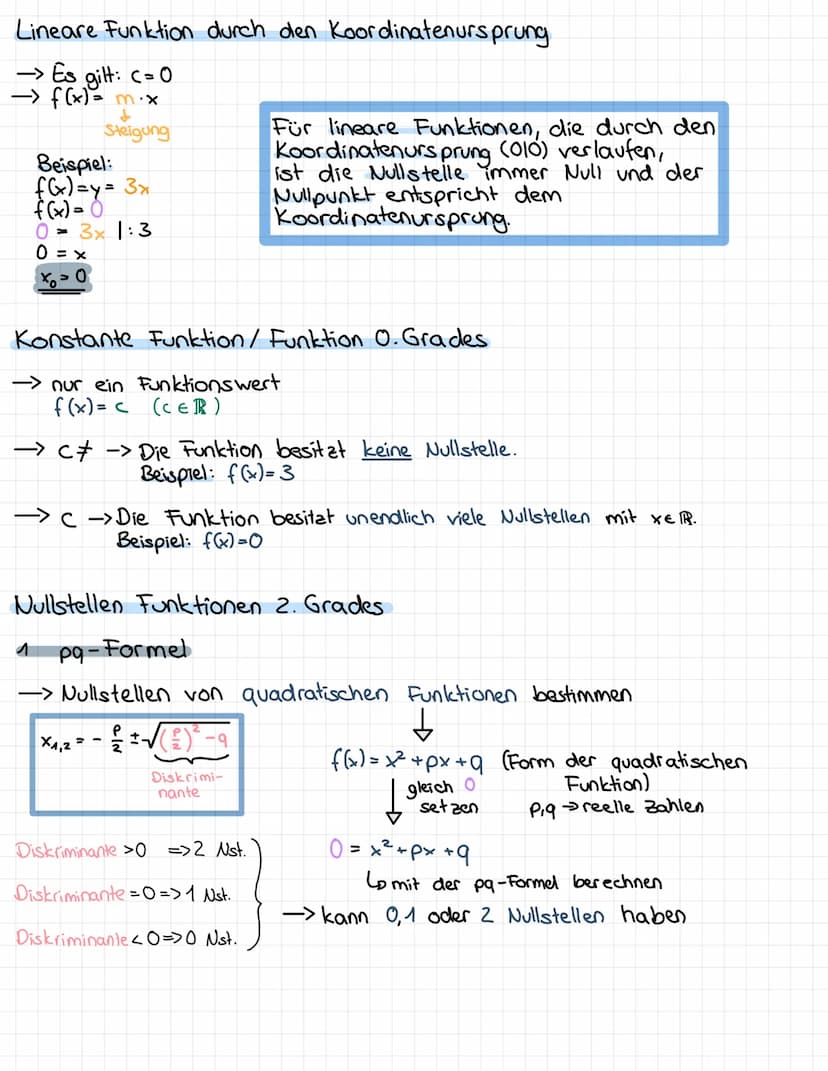 Lineare Funktion durch den Koordinatenursprung
→ Es gilt: c = 0
→ f(x) = m·x
↓
Steigung
Für lineare Funktionen, die durch den
Koordinatenursprung (0|0) verlaufen,
ist die Nullstelle immer Null und der
Nullpunkt entspricht dem
Koordinatenursprung.
Beispiel:
f(x) = y = 3x
f(x) = 0
0 = 3x |:3
0 = x
x₀ = 0
Konstante Funktion / Funktion 0. Grades
→ nur ein Funktionswert
f(x) = c (c ∈ ℝ)
→ c ≠ → Die Funktion besitzt keine Nullstelle.
Beispiel: f(x) = 3
→ c → Die Funktion besitzt unendlich viele Nullstellen mit x ∈ ℝ.
Beispiel: f(x) = 0
Nullstellen Funktionen 2. Grades
1 pq-Formel
→ Nullstellen von quadratischen Funktionen bestimmen
x₁,₂ = - p/2 ± √((p/2)² - q)
Diskrimi-
nante
↓
f(x) = x² + px + q (Form der quadratischen
Funktion)
↓ gleich 0
setzen
p,q → reelle Zahlen
0 = x² + px + q
↳ mit der pq-Formel berechnen
Diskriminante > 0 => 2 Nst.
Diskriminante = 0 => 1 Nst.
Diskriminante < 0 => 0 Nst.
→ kann 0,1 oder 2 Nullstellen haben